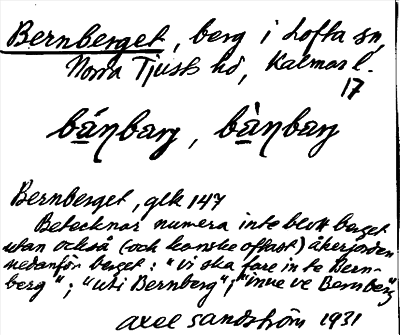 Bernberget, berg i Lofta sn,
Norra Tjusts hd, Kalmar l.
17
Bernberget, glk 147
Betecknar numera inte blott berget
utan också (och kanske oftast) åkerjorden
nedanför berget: "vi ska fare in te Bern-
berg"; "uti Bernberg"; "inne ve Bernberg
Axel Sandström 1931